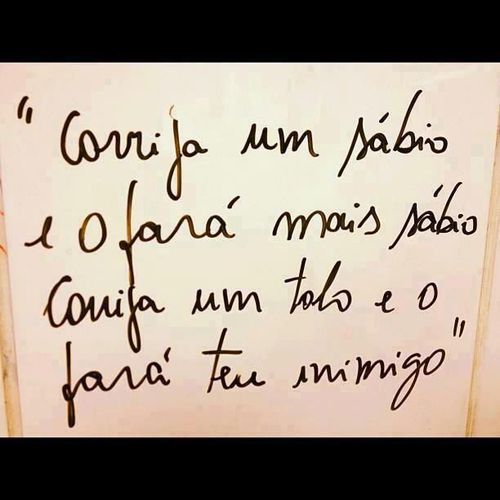 "Corrija um sábio
e o fará mais sábio
Corrija um tolo e o
fará teu inimigo"